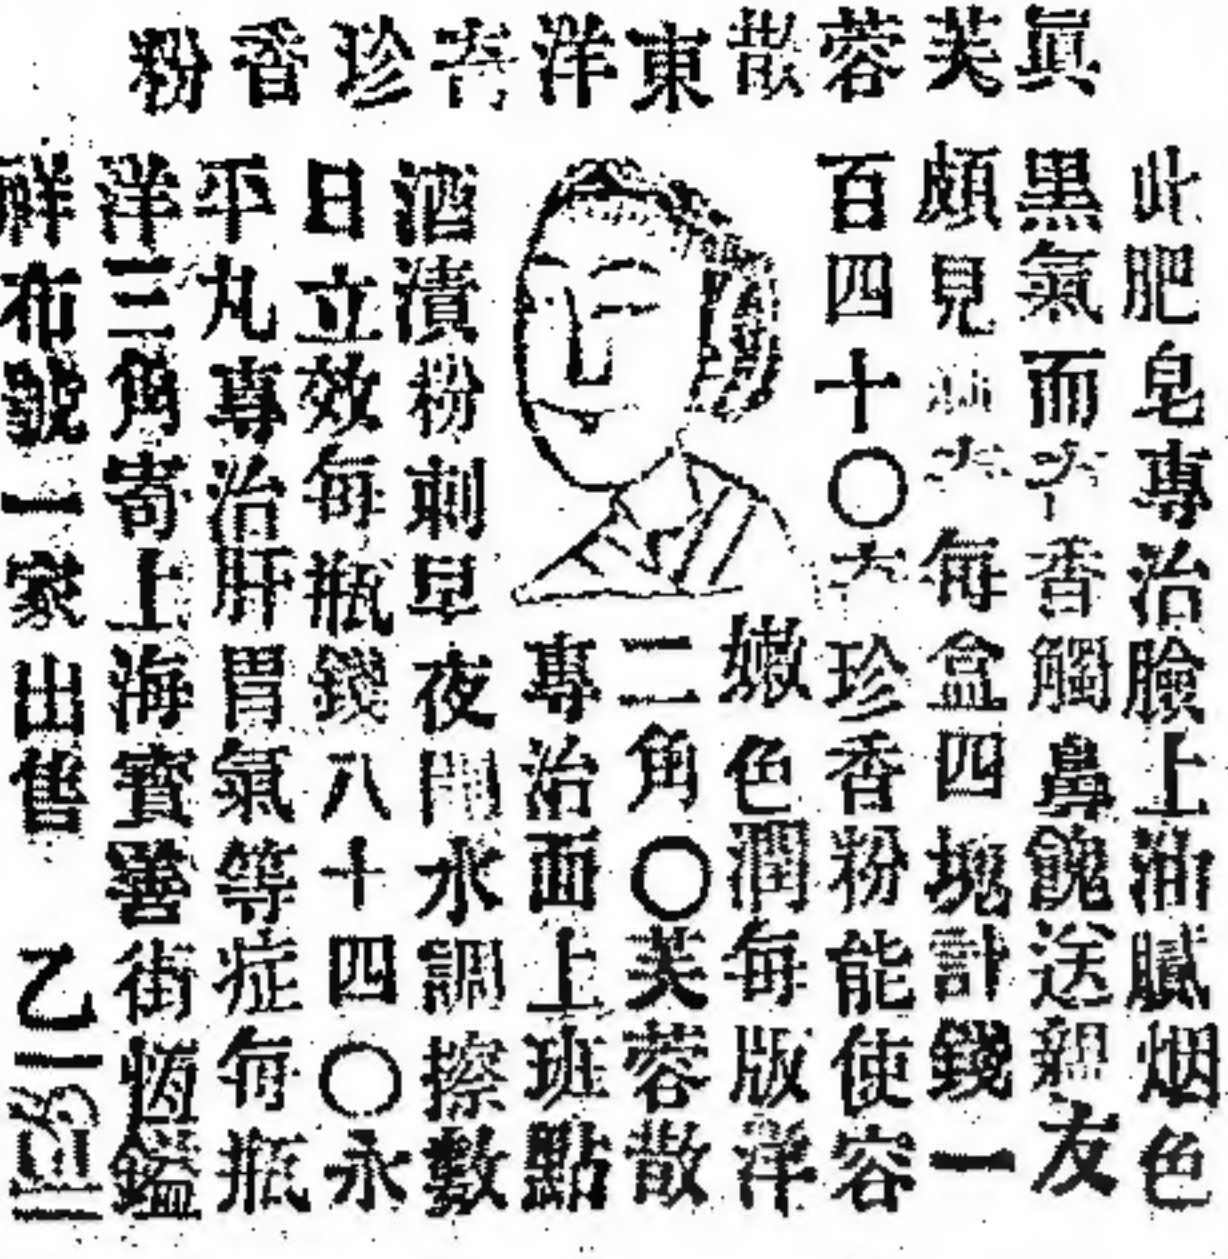 眞芙蓉散東洋奇珍香粉
此肥皂專治臉上油膩烟色
黑氣而香觸鼻餽送親友
頗見每盒四塊計錢一
百四十〇珍香粉能使容
嫩色潤每版洋
二角〇芙蓉散
專治面上班點
酒漬粉刺早夜開水調擦數
日立效每瓶錢八十四〇永
平丸專治肝胃氣等症每瓶
洋三角寄上海寶善街恆鎰
祥布號一家出售 乙一